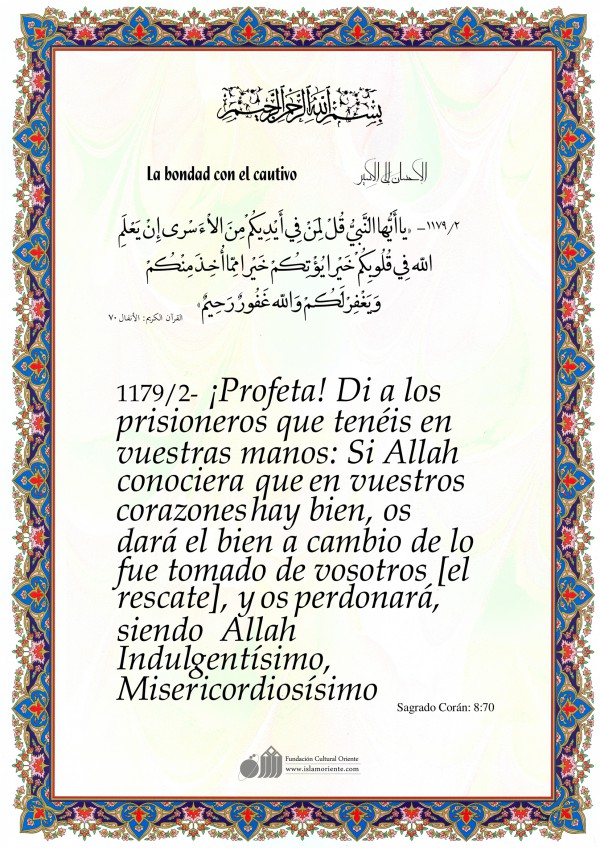 بِسْمِ اللهِ الرَّحْمنِ الرَّحِيمِ
La bondad con el cautivo
الاحسان إلى الأسير
١١٧٩/٢– «يا أَيُّها النَّبيُّ قُلْ لِمَنْ فِي أَيْدِيكُمْ مِنَ الاَءَسْرى إِنْ يَعْلَمِ
الله فِي قُلُوبِكُمْ خَيْرا يُؤْتِكُمْ خَيْرا مِمّا أُخِذَ مِنْكُمْ
وَيَغْفِرْ لَكُمْ وَالله غَفُورٌ رَحِيمٌ»
القرآن الكريم: الأنفال ٧٠
1179/2- ¡Profeta! Di a los
prisioneros que tenéis en
vuestras manos: Si Allah
conociera que en vuestros
corazones hay bien, os
dará el bien a cambio de lo
fue tomado de vosotros [el
rescate], y os perdonará,
siendo Allah
Indulgentísimo,
Misericordiosísimo
Sagrado Corán: 8:70
Fundación Cultural Oriente
www.islamoriente.com